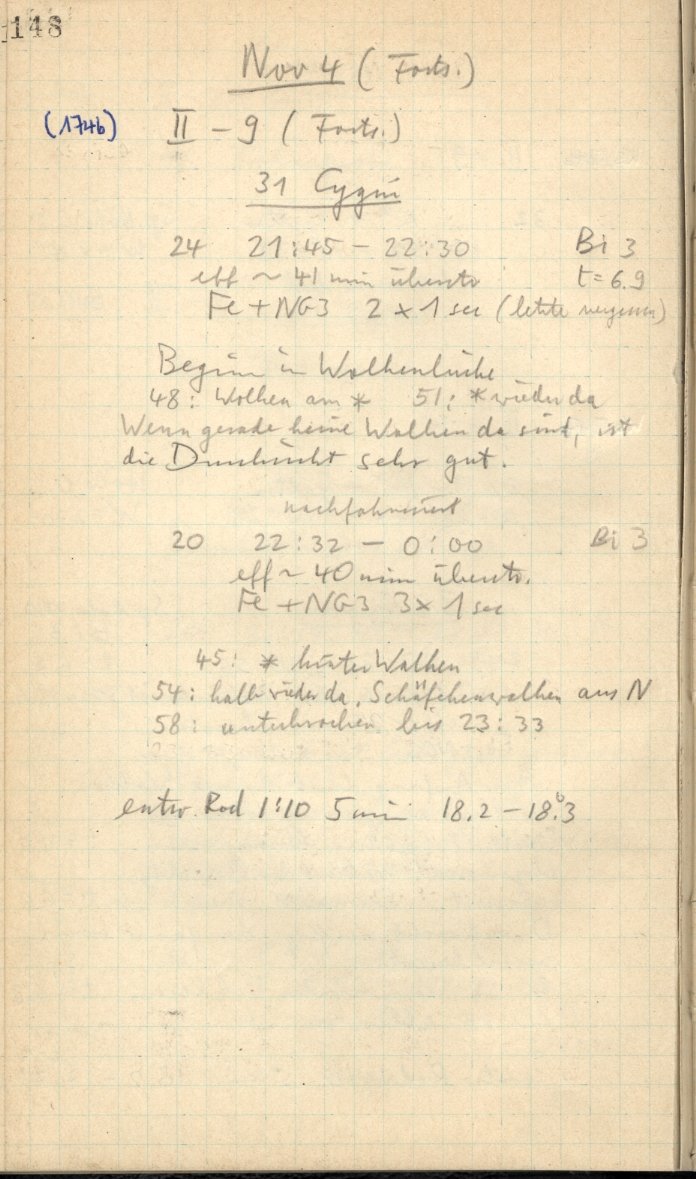 148
Nov 4 (Forts.)
(1746) II – 9 (Forts.)
31 Cygni
24 21:45 – 22:30 Bi 3
eff ~ 41 min überstr t = 6.9
Fe + NG3 2 × 1 sec (letzte vergessen)
Beginn in Wolkenlücke
48: Wolken am * 51: * wieder da
Wenn gerade keine Wolken da sind, ist
die Durchsicht sehr gut.
nachfokussiert
20 22:32 – 0:00 Bi 3
eff ~ 40 min überstr.
Fe + NG3 3 × 1 sec
45: * hinter Wolken
54: halb wieder da, Schäfchenwolken aus N
58: unterbrochen bis 23:33
entw. Rod 1:10 5 min 18.2 – 18.°3